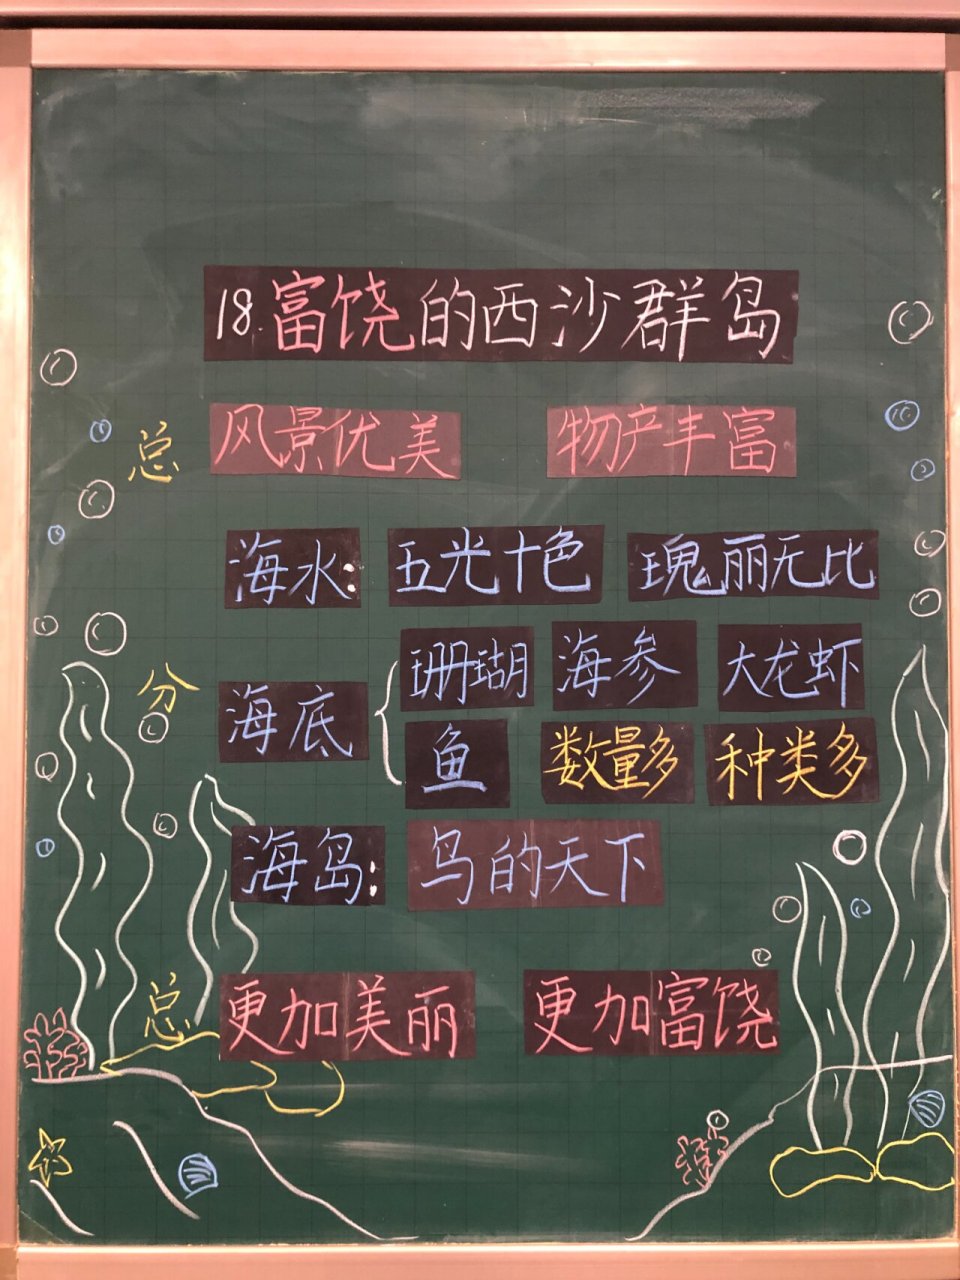 18.富饶的西沙群岛
总 风景优美 物产丰富
海水: 五光十色 瑰丽无比
珊瑚 海参 大龙虾
分 海底
鱼 数量多 种类多
海岛: 鸟的天下
总 更加美丽 更加富饶